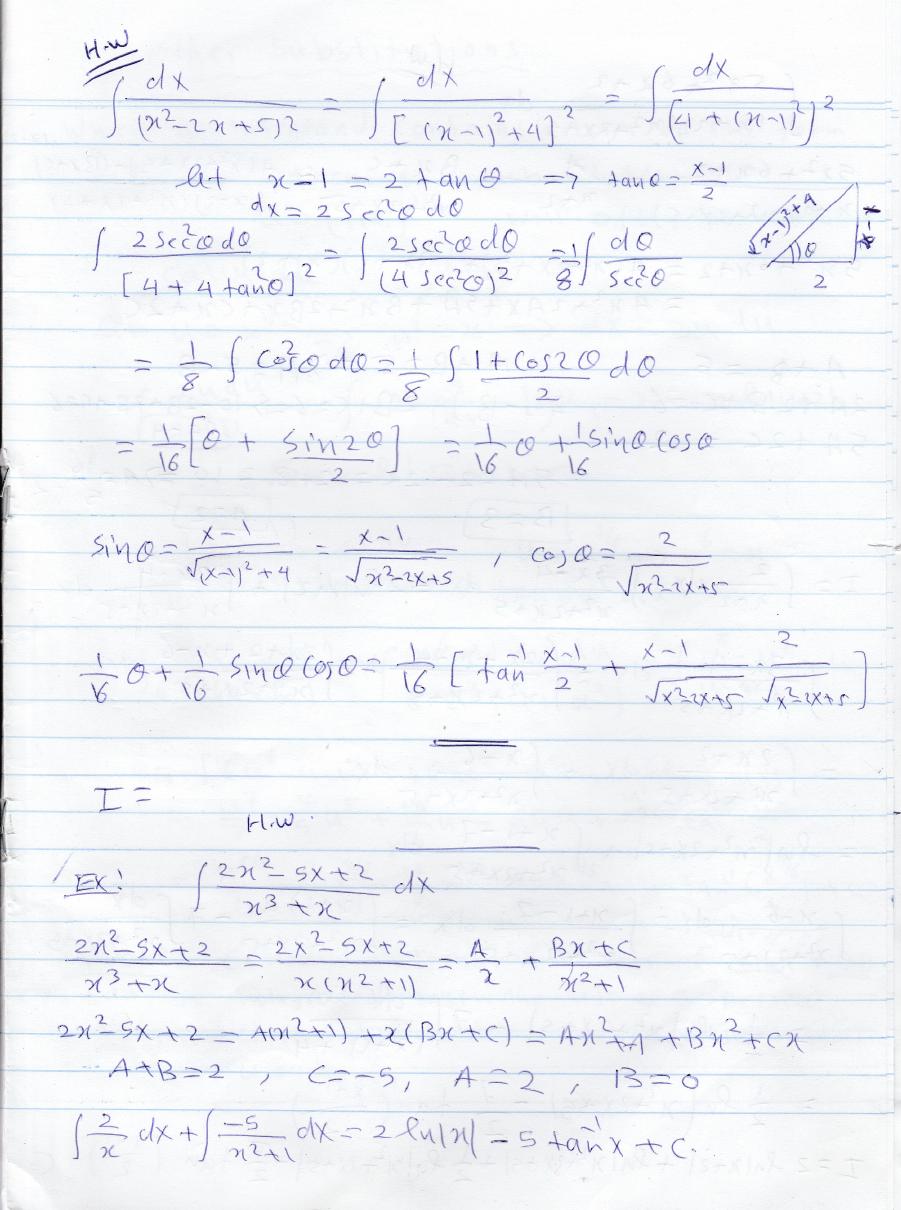 H.W
∫ dx/(x²-2x+5)² = ∫ dx/[(x-1)²+4]² = ∫ dx/[4+(x-1)²]²
let x-1 = 2 tanθ => tanθ = (x-1)/2
dx = 2 sec²θ dθ
√(x-1)²+4
θ
2
∫ 2sec²θ dθ/[4+4tan²θ]² = ∫ 2sec²θ dθ/(4sec²θ)² = 1/8 ∫ dθ/sec²θ
= 1/8 ∫ cos²θ dθ = 1/8 ∫ (1+cos2θ)/2 dθ
= 1/16 [θ + sin2θ/2] = 1/16 θ + 1/16 sinθ cosθ
sinθ = (x-1)/√(x-1)²+4 = (x-1)/√x²-2x+5 , cosθ = 2/√x²-2x+5
1/16 θ + 1/16 sinθ cosθ = 1/16 [tan⁻¹ (x-1)/2 + (x-1)/√x²-2x+5 · 2/√x²-2x+5]
I =
H.W.
EX: ∫ (2x²-5x+2)/(x³+x) dx
(2x²-5x+2)/(x³+x) = (2x²-5x+2)/(x(x²+1)) = A/x + (Bx+C)/(x²+1)
2x²-5x+2 = A(x²+1) + x(Bx+C) = Ax²+A+Bx²+Cx
A+B=2 , C=-5, A=2 , B=0
∫ 2/x dx + ∫ -5/(x²+1) dx = 2 ln|x| - 5 tan⁻¹x + C.